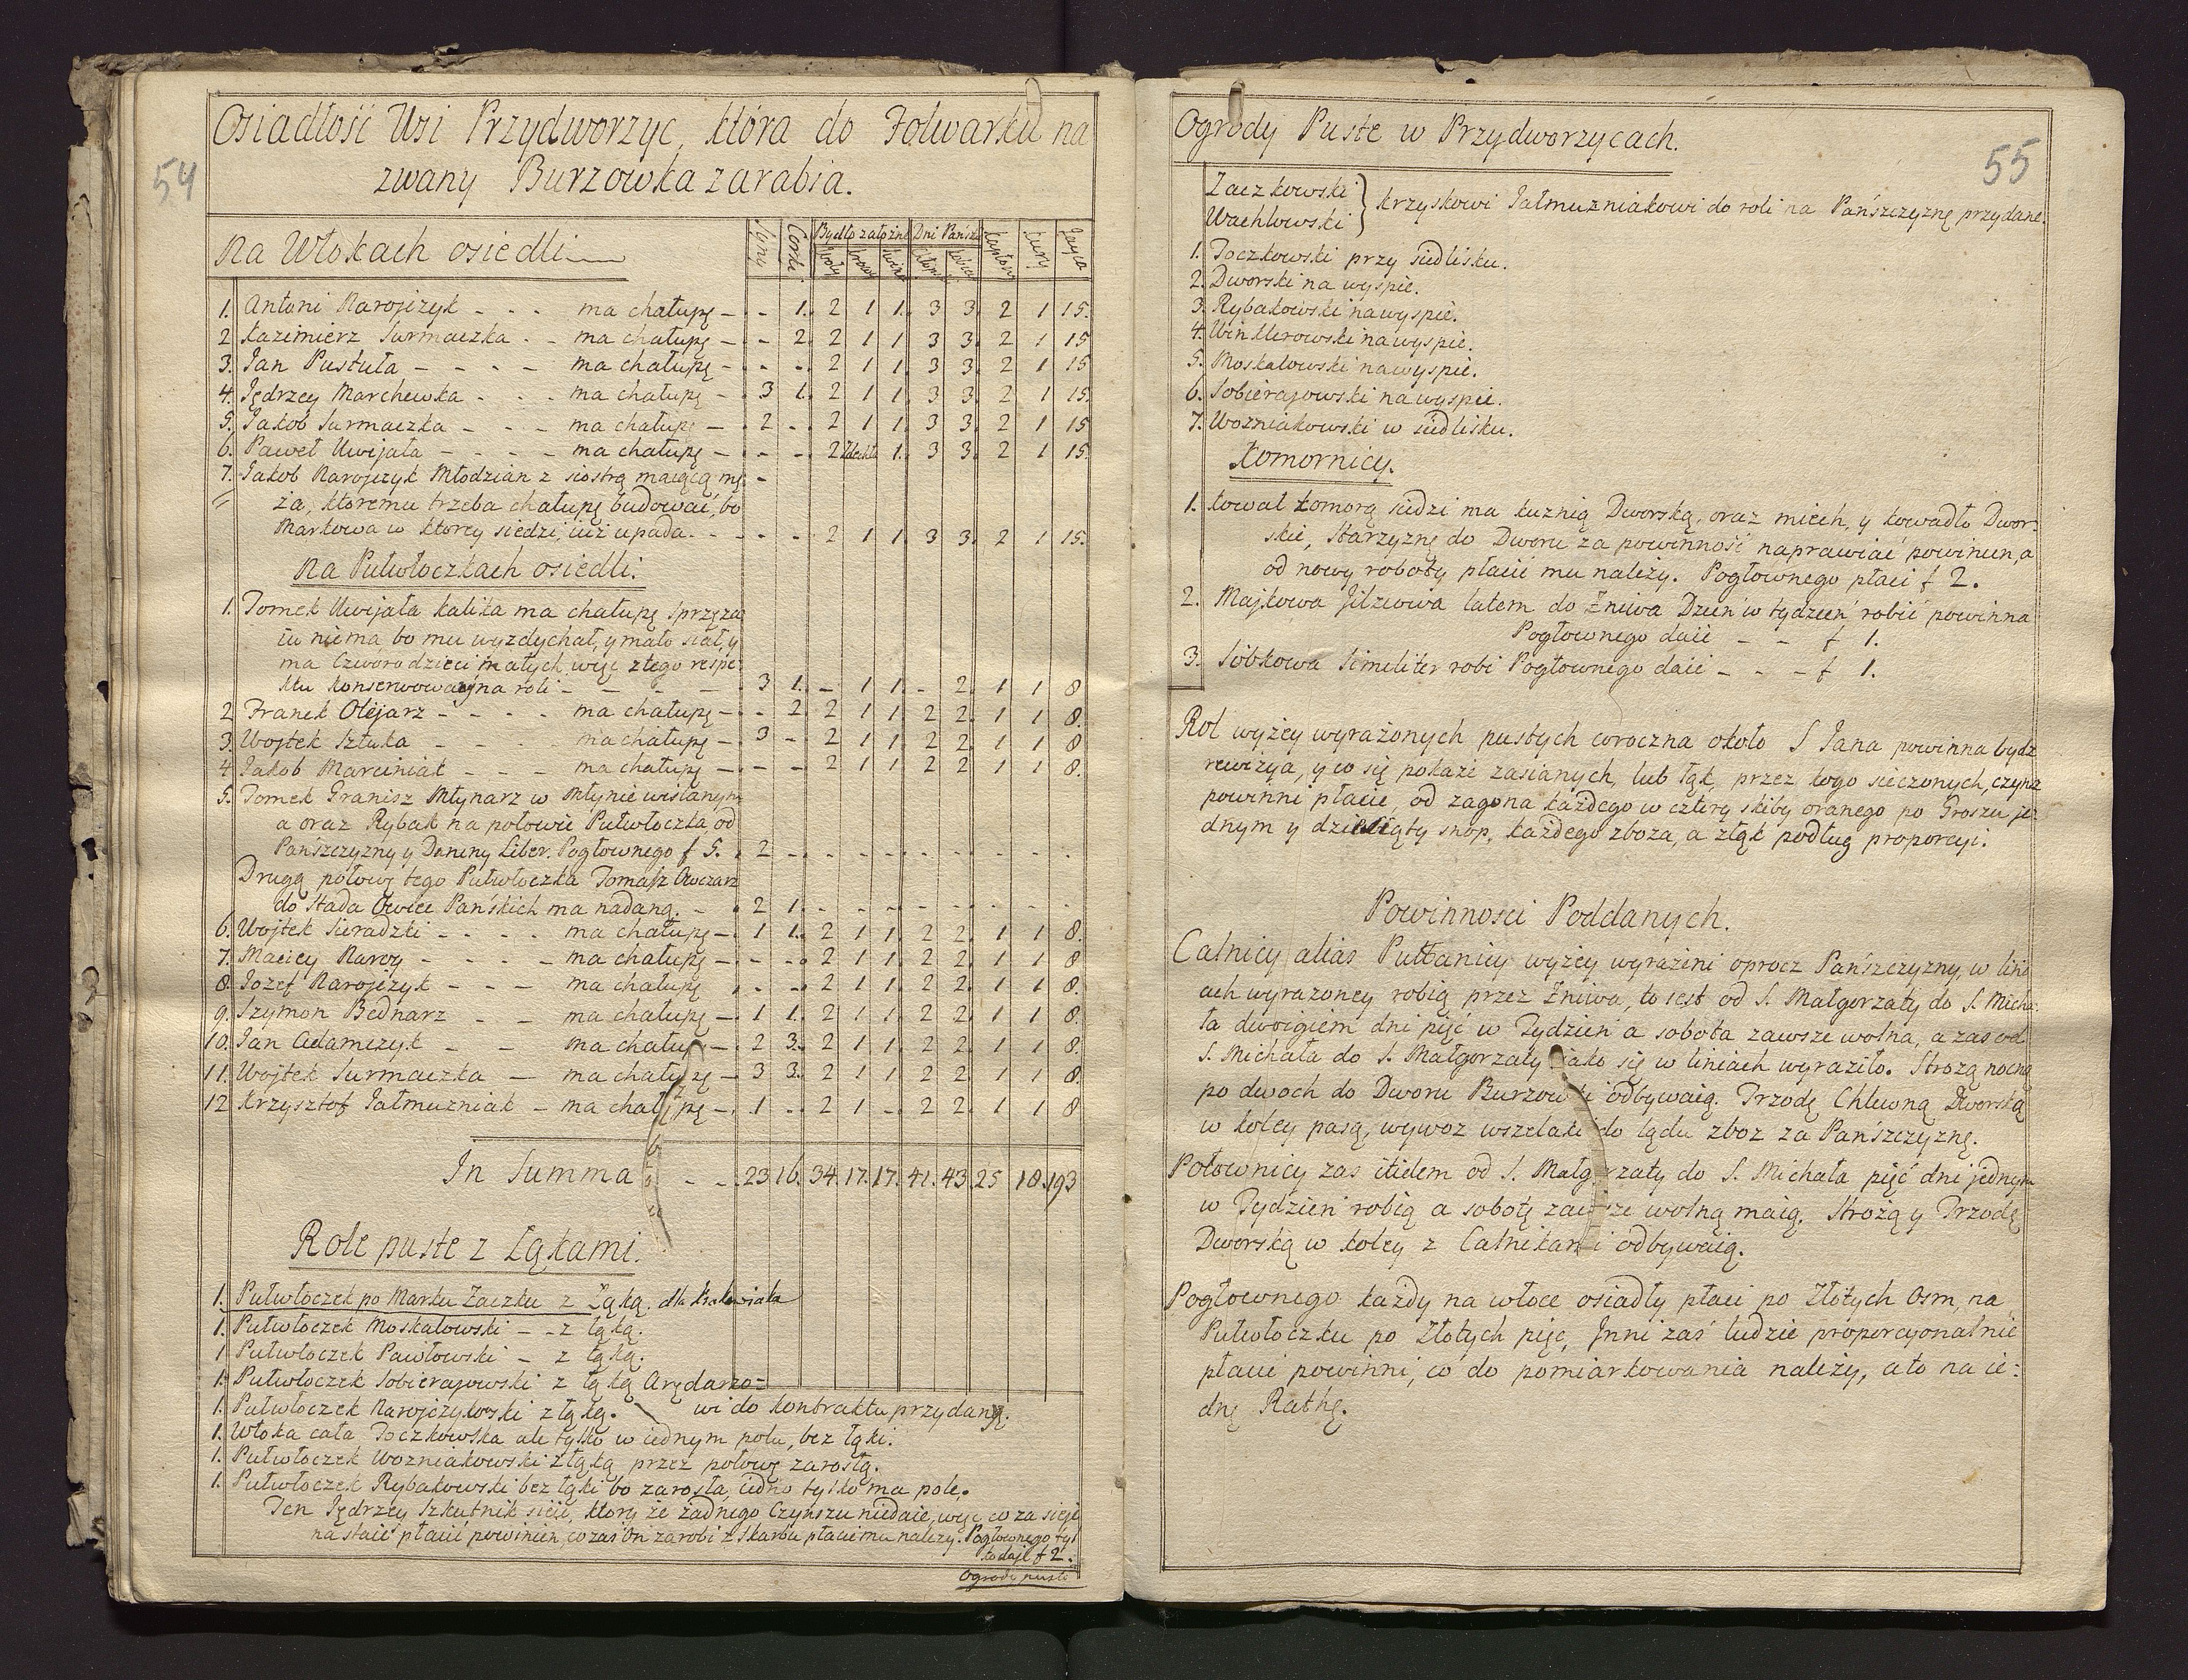 54
Osiadłość Wsi Przydworzyc, która do Folwarku na
zwany Burzowka zarabia.
Na Włokach osiedli
Syny Corki Bydło założne Dni Pańsz Kapłony Kury Jayca
Woły Krowy
1. Antoni Narojczyk - - - ma chałupę - - 1. 2 1 1. 3 3. 2 1 15.
2 Kazimierz Surmaczka - - ma chałupę - - 2. 2 1 1 3 3. 2 1 15
3. Jan Pustuła - - - - ma chałupę - - - 2 1 1 3 3. 2 1 15
4. Jędrzey Marchewka - - - ma chałupę - 3 1. 2 1 1 3 3. 2 1 15.
5. Jakob Surmaczka - - - ma chałupę - 2 - 2 1 1. 3 3. 2 1 15
6. Paweł Uwijała - - - - ma chałupę - - - 2 zdechła 1. 3 3. 2 1 15.
7. Jakob Narojczyk Młodzian z siostrą maiącą mę -
ża, ktoremu trzeba chałupę budować, bo
Markowa w ktorey siedzi, iuż upada. - - - - 2 1 1. 3 3. 2 1 15.
Na Pułwłoczkach osiedli.
1. Tomek Uwijała kalika ma chałupę sprzęża
iu niema, bo mu wyzdychał, y mało siał, y
ma Czworo dzieci małych, więc z tego respe
ktu konserwować na roli - - - - 3 1. - 1 1. - 2. 1 1 8
2 Franek Olejarz - - - - ma chałupę - - 2. 2 1 1. 2 2. 1 1 8.
3. Wojtek Sztuka - - - - ma chałupę - 3 - 2 1 1 2 2. 1 1 8
4 Jakob Marciniak - - - ma chałupę - - - 2 1 1 2 2 1 1 8.
5. Tomek Granisz Młynarz w Młynie wislanym
a oraz Rybak na połowie Pułwłoczka, od
Pańszczyzny y Daniny Liber. Pogłownego f 5. . 2 - - - - - - - - -
Drugą połowę tego Pułwłoczka Tomasz Owczarz
do Stada Owiec Pańskich ma nadaną. - . 2 1. - - - - - - - -
6. Wojtek Sieradzki - - - - ma chałupę - 1 1. 2 1 1. 2 2. 1 1 8.
7. Maciey Naroy - - - - ma chałupę - - - 2 1 1. 2 2. 1 1 8
8. Jozef Narojczyk - - - ma chałupę - - 2 1 1. 2 2. 1 1 8.
9. Szymon Bednarz - - ma chałupę - 1 1. 2 1 1. 2 2. 1 1 8.
10. Jan Adamczyk - - ma chałupę - 2 3. 2 1 1. 2 2. 1 1 8.
11. Wojtek Surmaczka - ma chałupę - 3 3. 2 1 1. 2 2. 1 1 8.
12 Krzysztof Jałmuzniak - ma chałupę - 1 - 2 1 - 2 2. 1 1 8
In Summa - - 23 16. 34. 17. 17. 41. 43. 25 18. 193
Role puste z Łąkami.
1. Pułwłoczek po Marku Zaczku z Łąką. dla
1. Pułwłoczek Moskalowski - - z łąką.
1 Pułwłoczek Pawłowski - z łąką.
1. Pułwłoczek Sobierajowski z łąką Arędarzo=
1. Pułwłoczek Narojczykowski z łąką. wi do kontraktu przydany.
1. Włoka cała Toczkowska ale tylko w iednym polu, bez łąki.
1. Pułwłoczek Wozniakowski z łąką przez połowę zarosłą.
1. Pułwłoczek Rybakowski bez łąki bo zarosła, iedno tylko ma pole.
Ten Jędrzey Szkutnik sieie, ktory że żadnego Czynszu niedaie, więc co za sieie
na staie płacić powinien, co zaś On zarobi z Skarbu płacić mu nalezy. Pogłownego ty
ko daje f 2.
Ogrody puste
55
Ogrody Puste w Przydworzycach.
Zaczkowski
Wachlowski } Krzyskowi Jałmuzniakowi do roli na Pańszczyznę przydane.
1. Toczkowski przy siedlisku.
2. Dworski na wyspie.
3. Rybakowski na wyspie.
4. Winklerowski na wyspie.
5. Moskalowski na wyspie.
6. Sobierajowski na wyspie.
7. Wozniakowski w siedlisku.
Komornicy.
1. Kowal komorą siedzi ma kuznią Dworską, oraz miech, y kowadło Dwor=
skie, Starzyznę do Dworu za powinność naprawiać powinien, a
od nowy roboty płacić mu należy. Pogłownego płaci f 2.
2. Majkowa Jilzowa latem do Żniwa Dzień w tydzień robić powinna
Pogłownego daie - - f 1.
3. Sobkowa Similiter robi Pogłownego daie - - - f 1.
Rol wyżey wyrażonych pustych coroczna około S Jana powinna bydz
rewizya, y co się pokaże zasianych, lub łąk, przez kogo sieczonych, czynsz
powinni płacić, od zagona każdego w cztery skiby oranego po Groszu je=
dnym y dziesiąty snop, każdego zboza, a z łąk podług proporcyi.
Powinnosci Poddanych.
Calnicy alias Pułłanicy wyżey wyrażeni oprocz Pańszczyzny, w lini
ach wyrazoney robią przez Żniwa, to iest od S. Małgorzaty do S. Micha=
ła dwoigiem dni pięć w Tydzień a sobota zawsze wolna, a zas od
S. Michała do S. Małgorzaty iako się w liniach wyraziło. Strożą nocną
po dwoch do Dworu Burzowki odbywaią. Trzodę Chlewną Dworską
w koley pasą, wywoz wszelaki do lądu zboz za Pańszczyznę.
Połownicy zas itidem od S. Małgorzaty do S. Michała pięć dni jednym
w Tydzień robią a sobotę zawsze wolną maią. Strożą y Trzodę
Dworską w koley z Calnikami odbywaią.
Pogłownego każdy na włoce osiadły płaci po Złotych Osm, na
Pułwłoczku po Złotych pięc, Jnni zaś ludzie proporcyonalnie
płacić powinni, co do pomiarkowania należy, a to na ie=
dnę Rathę.